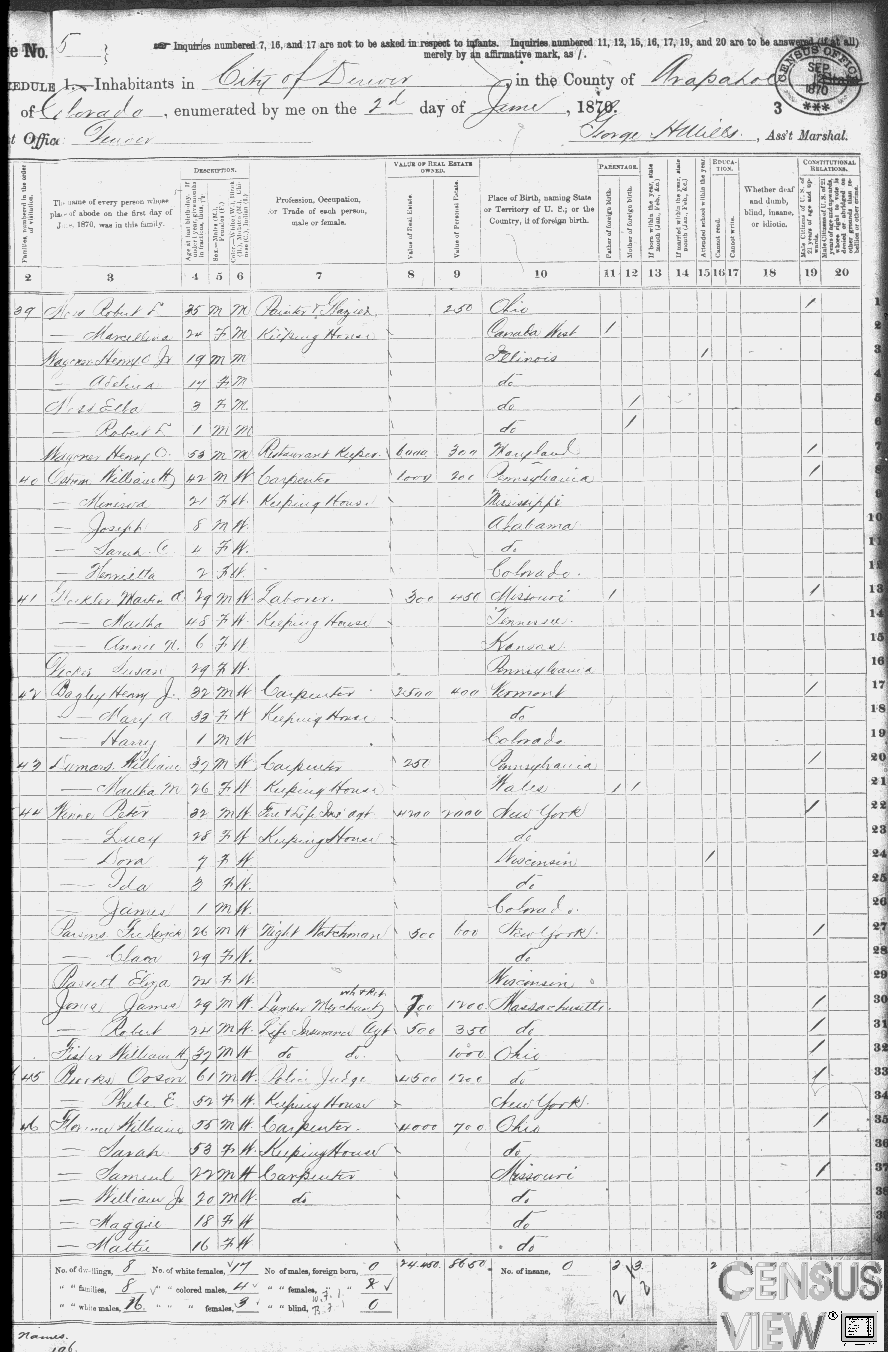 e No. 5
Inquiries numbered 7, 16, and 17 are not to be asked in respect to infants. Inquiries numbered 11, 12, 15, 16, 17, 19, and 20 are to be answered (if at all)
merely by an affirmative mark, as /.
EDULE 1.— Inhabitants in City of Denver, in the County of Arapahoe
of Colorado, enumerated by me on the 2d day of June, 1870.
CENSUS OFFICE SEP 1870
3
t Office: Denver
George, Ass't Marshal.
DESCRIPTION. VALUE OF REAL ESTATE OWNED. PARENTAGE. EDUCATION. CONSTITUTIONAL RELATIONS.
Families, numbered in the order of visitation.
The name of every person whose place of abode on the first day of June, 1870, was in this family.
Profession, Occupation, or Trade of each person, male or female.
Value of Real Estate.
Value of Personal Estate.
Place of Birth, naming State or Territory of U. S.; or the Country, if of foreign birth.
Father of foreign birth.
Mother of foreign birth.
Attended school within the year.
Cannot read.
Cannot write.
Whether deaf and dumb, blind, insane, or idiotic.
2 3 4 5 6 7 8 9 10 11 12 13 14 15 16 17 18 19 20
39 Robert F 35 M M Painter & Glazier 250 Ohio / 1
— Marcellina 24 F M Keeping House Canada West / 2
Wagoner Henry O Jr 19 M M Illinois / 3
— Adelina 17 F M do 4
Ella 3 F M do / 5
— Robert F 1 M M do / 6
Wagoner Henry O. 53 M M Restaurant Keeper 6000 300 Maryland / 7
40 William H 42 M W Carpenter 1000 200 Pennsylvania / 8
— Minerva 21 F W Keeping House Mississippi 9
— Joseph 8 M W Alabama 10
— Sarah C. 4 F W do 11
— Henrietta 2 F W Colorado. 12
41 Martin A 29 M W Laborer. 300 450 Missouri / / 13
— Martha 45 F W Keeping House Tennessee 14
— Annie N. 6 F W Kansas 15
Decker Susan 29 F W Pennsylvania 16
42 Bagley Henry J. 32 M W Carpenter 2500 400 Vermont / 17
— Mary A 33 F W Keeping House do 18
— Harry 1 M W Colorado 19
43 Dumars William 37 M W Carpenter 250 Pennsylvania / 20
— Martha M 26 F W Keeping House Wales / / 21
44 Winne Peter 32 M W Fire & Life Ins agt 4200 2000 New York / 22
— Lucy 28 F W Keeping House do 23
— Dora 7 F W Wisconsin / 24
— Ida 3 F W. do 25
— James 1 M W Colorado 26
Parsons Frederick 26 M W Night Watchman 500 600 New York / 27
— Clara 29 F W. do 28
Eliza 24 F W Wisconsin 29
Jones James 29 M W Lumber Merchant 700 1200 Massachusetts. / 30
— Robert 24 M W Life Insurance Agt 500 350 do / 31
Fisher William H 37 M W do do. 1000 Ohio / 32
45 Brooks Orson 61 M W Police Judge 4500 1200 do / 33
— Phebe E. 52 F W Keeping House New York 34
46 Florence William 55 M W Carpenter 4000 700 Ohio / 35
— Sarah 53 F W Keeping House do 36
— Samuel 22 M W Carpenter Missouri / 37
— William Jr 20 M W do do 38
— Maggie 18 F W do
— Mattie 16 F W do
No. of dwellings, 8 No. of white females, 17 No. of males, foreign born, 0 24.450 8650. No. of insane, 0 2 3 2
" " families, 8 " " colored males, 4 " " females, " 2
" " white males, 16 " " females, 3 " " blind, 0
names.
196
CENSUS
VIEW